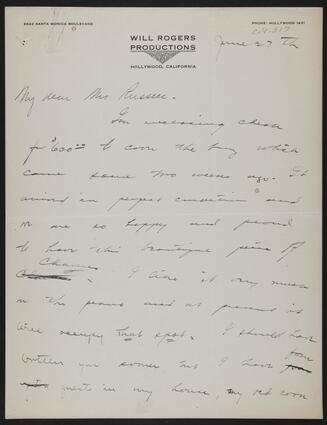 6642 SANTA MONICA BOULEVARD
PHONE: HOLLYWOOD 1431
WILL ROGERS
PRODUCTIONS
HOLLYWOOD, CALIFORNIA
June 27th
My dear Mr Russell -
I'm enclosing check
for $600.00 to cover the rug which
came some two weeks ago. It
arrived in perfect condition and
we are so happy and proud
to have this beautiful piece of
Charlie
. I like it very much
on the piano and at present it
will occupy that spot. I should have
written you sooner but I have four
guests in my house, my old coon